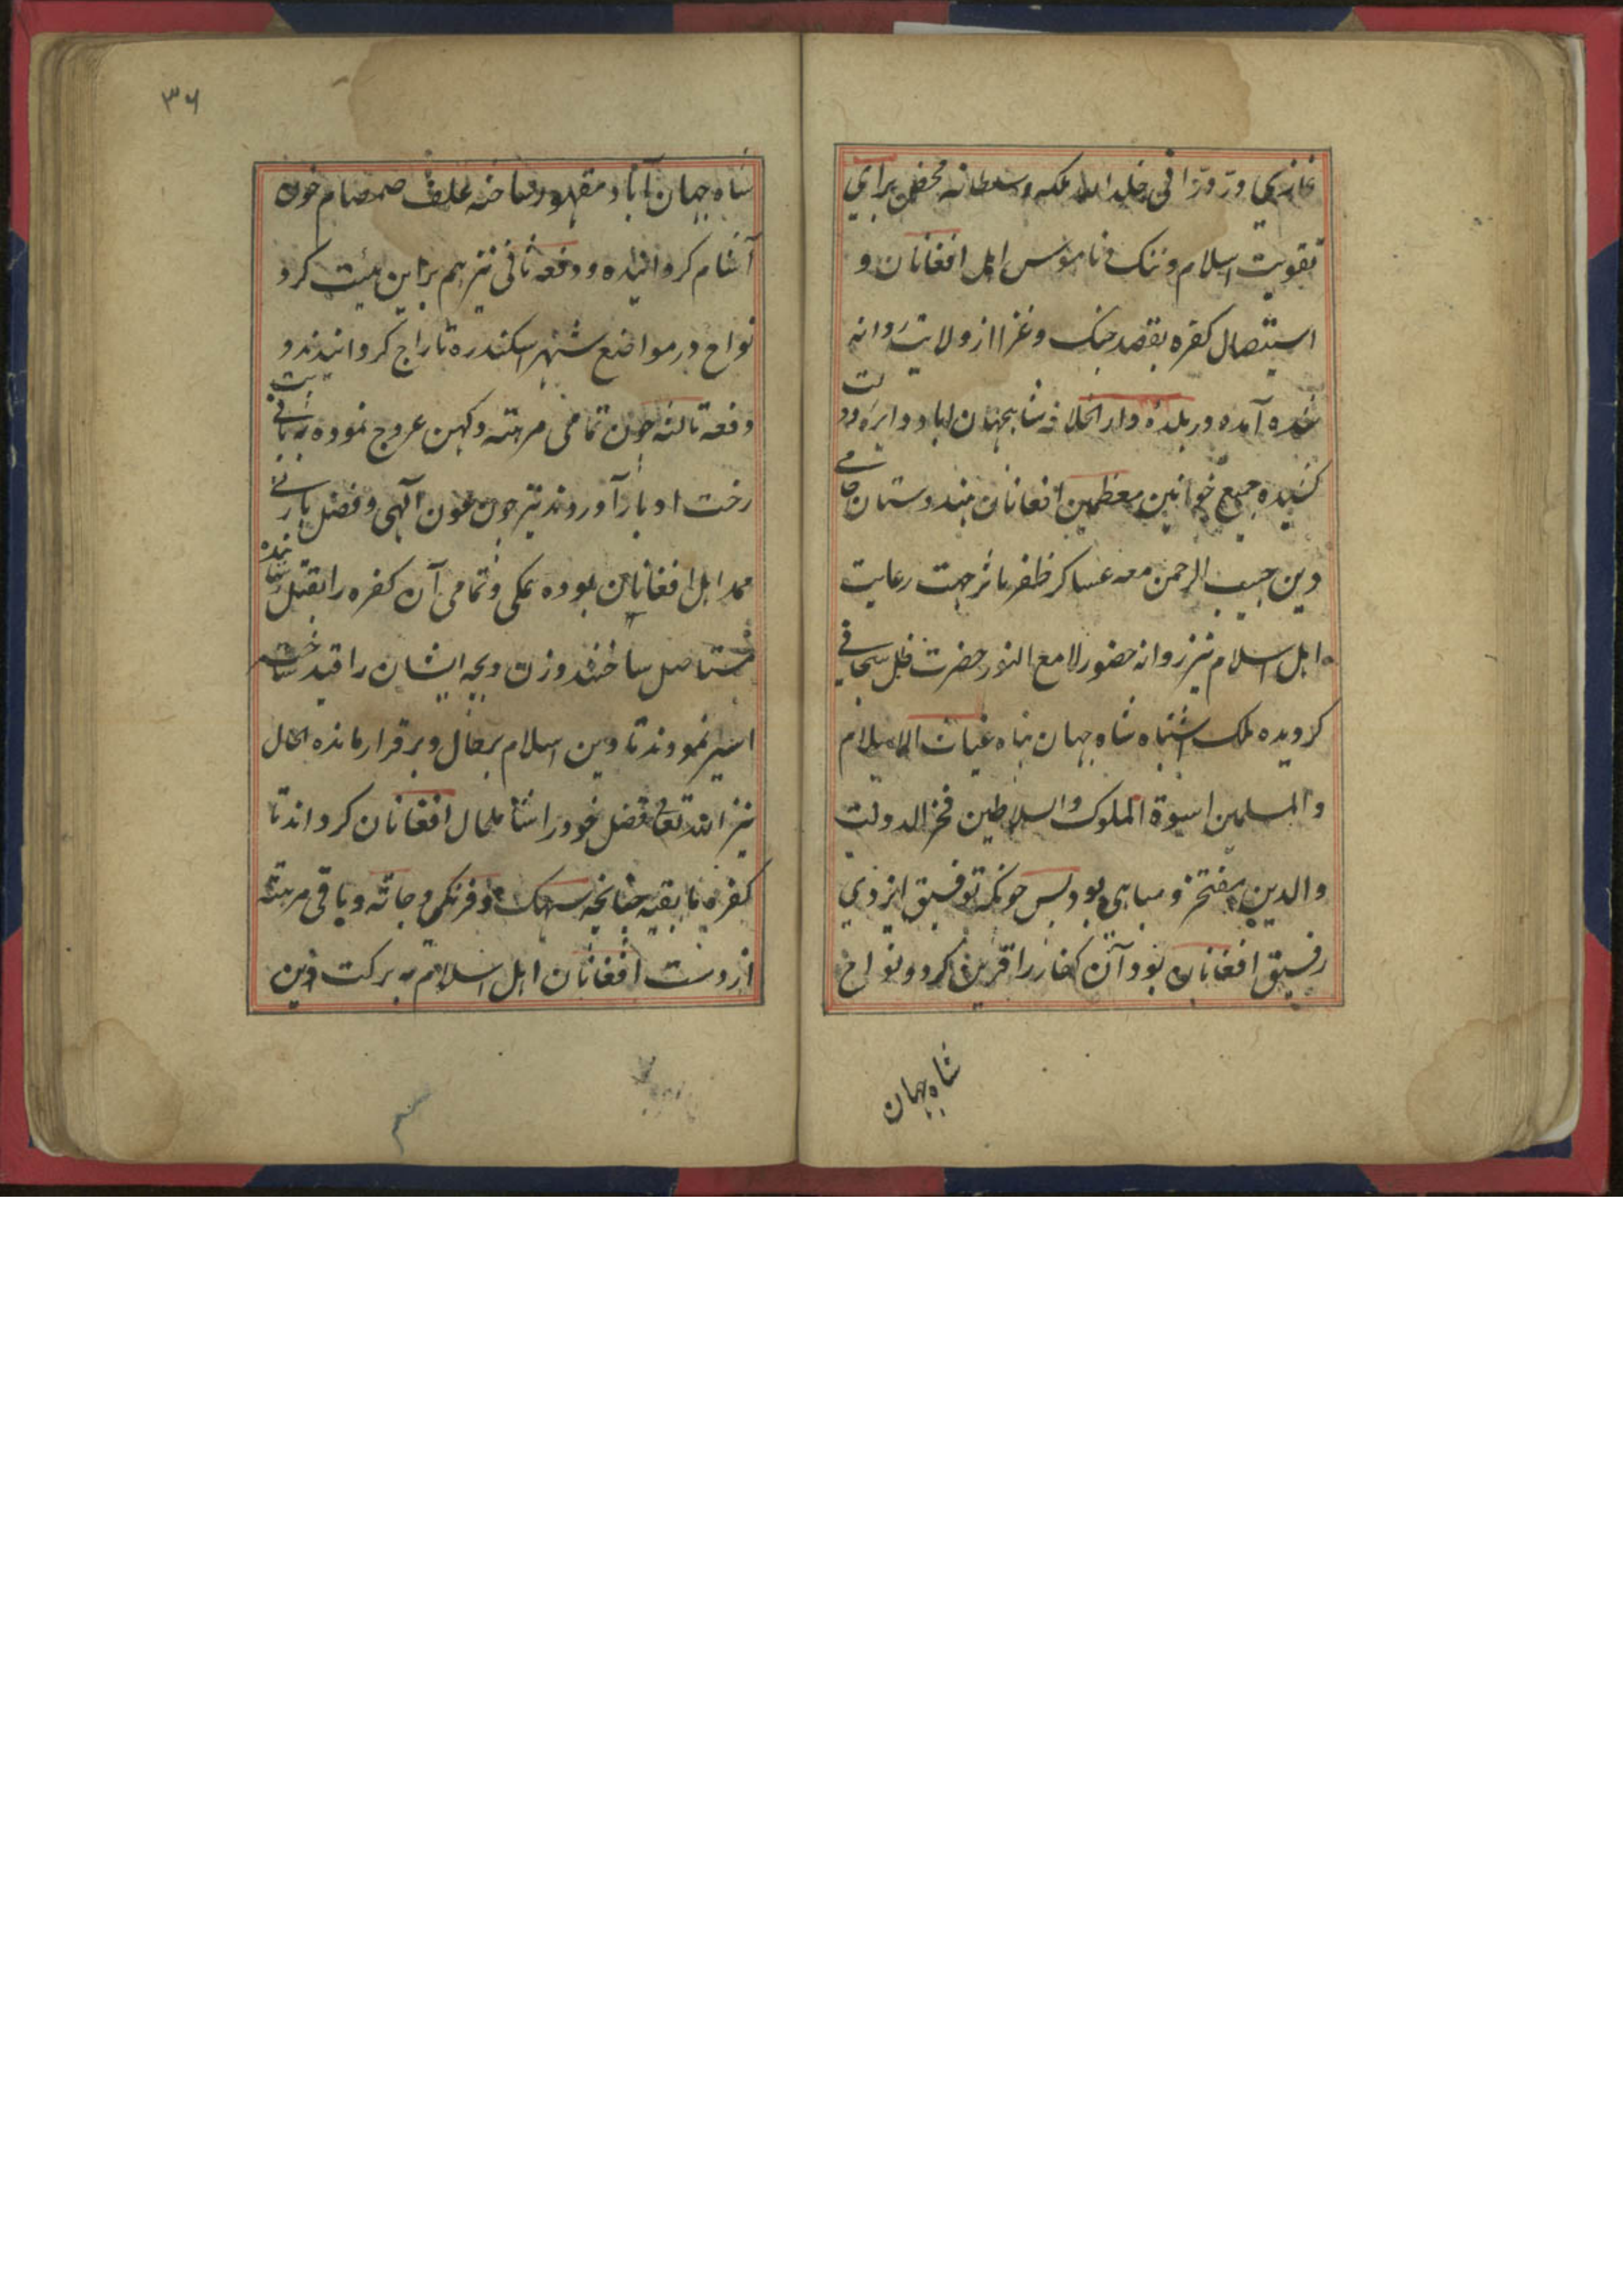 غازی در درانی خلد الله ملکه و سلطانه محض برای
تقویت اسلام و ننک و ناموس اهل افغانان و
استیصال کفره بقصد جنک و غزا از ولایت روانه
شده آمده در بلدهٔ دار الخلافه شاهجهان اباد دایره دولت
کشیده جمیع خوانین معظمین افغانان هندوستان حامی
دین حبیب الرحمن معه عساکر ظفر ماثر جهت رعایت
اهل اسلام نیز روانه حضور لامع النور حضرت ظل سبحانی
کردیده ملک اشتباه شاه جهان پناه غیاث الاسلام
والمسلمین اسوة الملوک والسلاطین فخر الدولت
والدین مفتخر و مباهی بود پس چونکه توفیق ایزدی
رفیق افغانان بود آن کفار را قرین کرد و نواح
شاه جهان
۳۶
شاه جهان آباد مقهور ساخته علف صمصام خون
آشام کردانیده و دفعه ثانی نیز هم براین هیئت کرد
نواح در مواضع شهر اسکندره تاراج کردانیدند و
دفعه ثالثه چون تمامی مرهته دکهن عروج نموده به پانی پت
رخت ادبار آوردند نیز چون عون آلهی و فضل ربانی
ممد اهل افغانان بوده یمکی و تمامی آن کفره را بقتل رسانیده
مستاصل ساختند و زن و بچه ایشان را قید ساخته
اسیر نمودند تا دین اسلام بر حال و برقرار مانده الحال
نیز الله تعالی فضل خود را شامل حال افغانان کرداند تا
کفره ما بقیه چنانچه سهک و فرنکی و جاته و باقی مرهته
از دست افغانان اهل اسلام به برکت دین